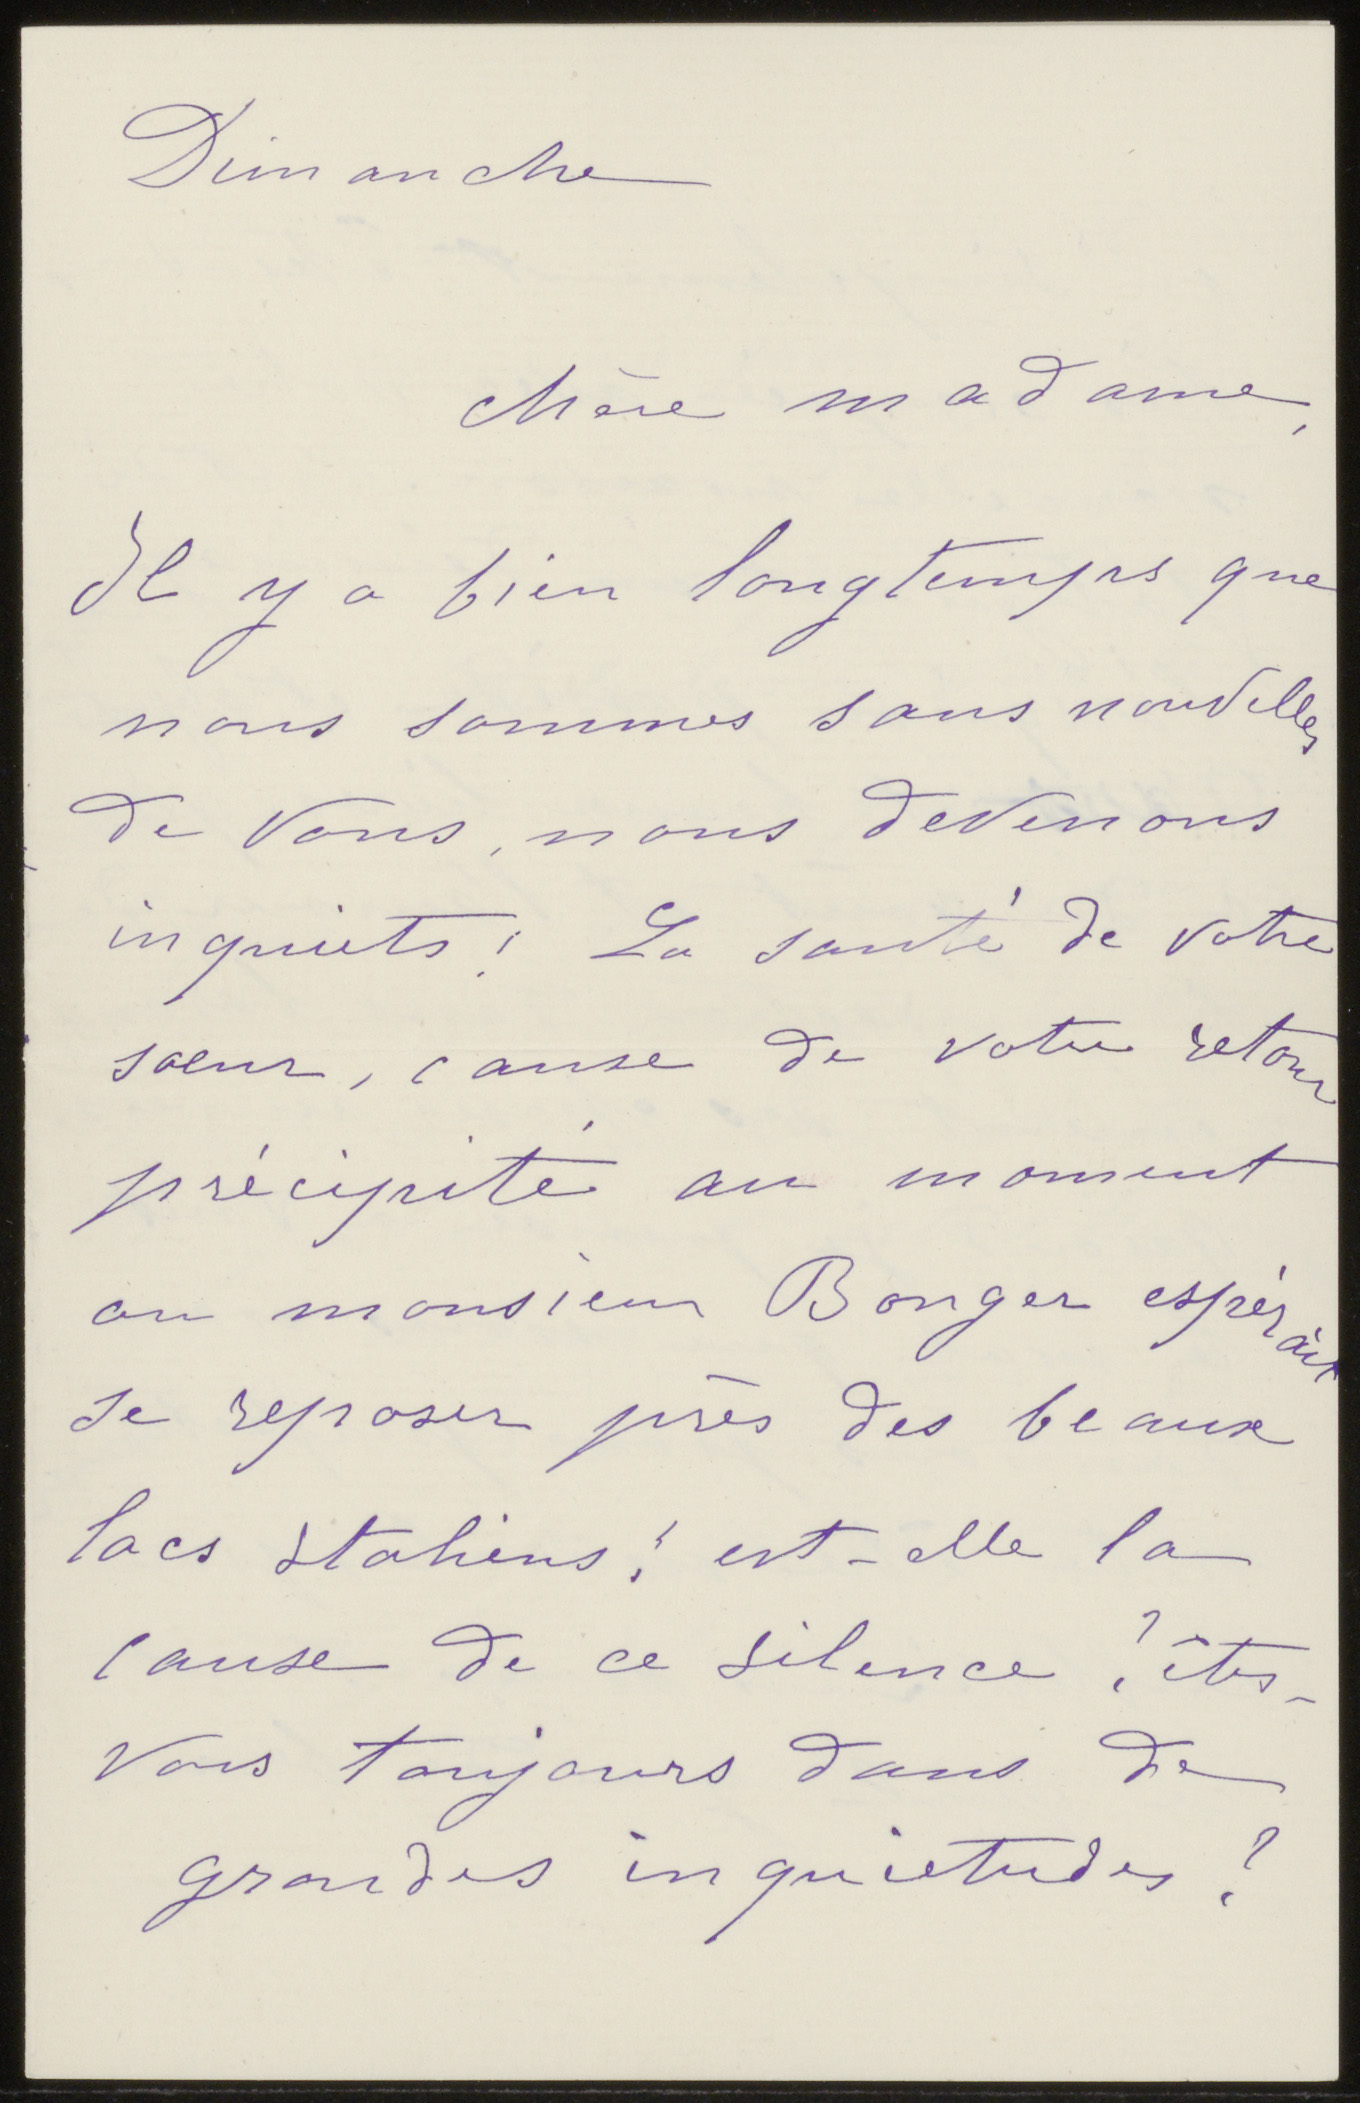 Dimanche
chère madame,
Il y a bien longtemps que
nous sommes sans nouvelles
de vous, nous devenons
inquiets! La santé de votre
soeur, cause de votre retour
précipité au moment
ou monsieur Bonger espérait
se reposer près des beaux
lacs italiens! est-elle la
cause de ce silence? êtes-
vous toujours dans de
grandes inquietudes?